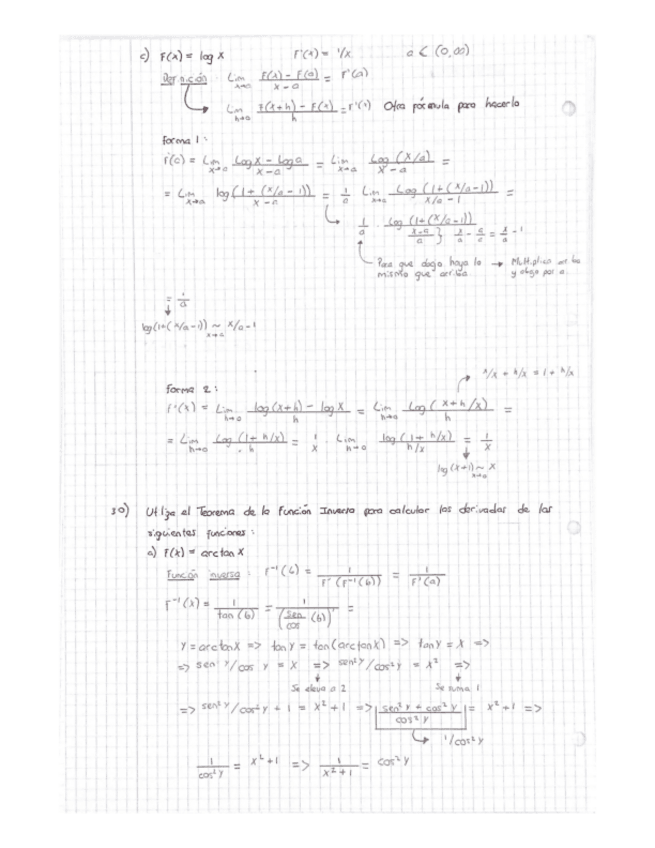 c) F(x) = log x F'(x) = 1/x a ∈ (0,∞)
Definición Lim x→a F(x) - F(a) / x - a = F'(a)
Lim h→0 F(x+h) - F(x) / h = F'(x) Otra fórmula para hacerlo
Forma 1:
F'(a) = Lim x→a Log x - Log a / x - a = Lim x→a Log (x/a) / x - a =
= Lim x→a log(1 + (x/a - 1)) / x - a = 1/a Lim x→a Log (1 + (x/a - 1)) / x/a - 1 =
1/a · Log (1 + (x/a - 1)) / x-a/a } x/a - a/a = x/a - 1
Para que abajo haya lo mismo que arriba → Multiplico arriba y abajo por a
= 1/a
log(1+(x/a - 1)) ~ x→a x/a - 1
Forma 2:
x/x + h/x = 1 + h/x
F'(x) = Lim h→0 log(x+h) - log x / h = Lim h→0 Log (x+h/x) / h =
= Lim h→0 Log (1 + h/x) / h = 1/x · Lim h→0 log (1 + h/x) / h/x = 1/x
log (x+1) ~ x→0 x
30) Utiliza el Teorema de la Función Inversa para calcular las derivadas de las
siguientes funciones:
a) F(x) = arctan x
Función inversa: F⁻¹(b) = 1 / F'(F⁻¹(b)) = 1 / F'(a)
F⁻¹(x) = 1 / tan (b) = 1 / (sen/cos (b))' =
y = arctan x => tan y = tan(arctan x) => tan y = x =>
=> sen y/cos y = x => sen² y/cos² y = x² =>
Se eleva a 2 Se suma 1
=> sen² y/cos² y + 1 = x² + 1 => sen² y + cos² y / cos² y = x² + 1 =>
1/cos² y
1 / cos² y = x² + 1 => 1 / x² + 1 = cos² y